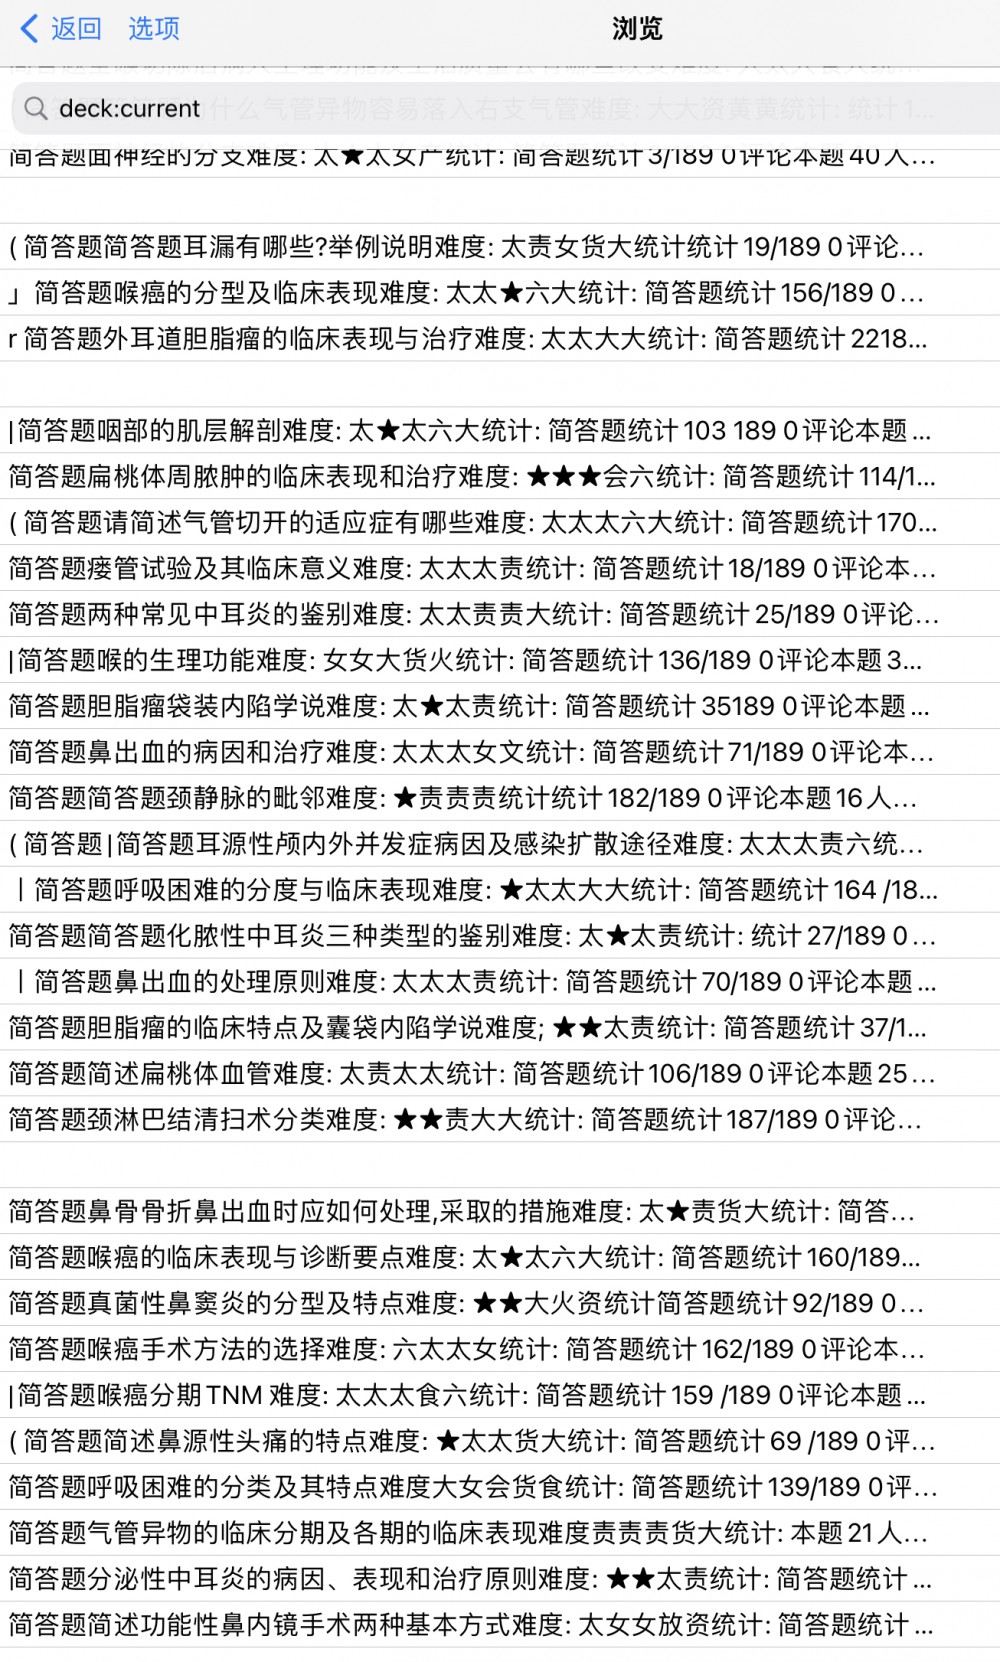 返回 选项 浏览
deck:current
简答题面神经的分支难度: 太★太女产统计: 简答题统计 3/189 0评论本题 40人...
( 简答题简答题耳漏有哪些?举例说明难度: 太责女货大统计统计 19/189 0评论...
」 简答题喉癌的分型及临床表现难度: 太太★六大统计: 简答题统计 156/189 0...
r 简答题外耳道胆脂瘤的临床表现与治疗难度: 太太大大统计: 简答题统计 2218...
|简答题咽部的肌层解剖难度: 太★太六大统计: 简答题统计 103 189 0评论本题 ...
简答题扁桃体周脓肿的临床表现和治疗难度: ★★★会六统计: 简答题统计 114/1...
( 简答题请简述气管切开的适应症有哪些难度: 太太太六大统计: 简答题统计 170...
简答题瘘管试验及其临床意义难度: 太太太责统计: 简答题统计 18/189 0评论本...
简答题两种常见中耳炎的鉴别难度: 太太责责大统计: 简答题统计 25/189 0评论...
|简答题喉的生理功能难度: 女女大货火统计: 简答题统计 136/189 0评论本题 3...
简答题胆脂瘤袋装内陷学说难度: 太★太责统计: 简答题统计 35189 0评论本题 ...
简答题鼻出血的病因和治疗难度: 太太太女文统计: 简答题统计 71/189 0评论本...
简答题简答题颈静脉的毗邻难度: ★责责责统计统计 182/189 0评论本题 16人...
( 简答题|简答题耳源性颅内外并发症病因及感染扩散途径难度: 太太太责六统...
丨简答题呼吸困难的分度与临床表现难度: ★太太大大统计: 简答题统计 164 /18...
简答题简答题化脓性中耳炎三种类型的鉴别难度: 太★太责统计: 统计 27/189 0...
丨简答题鼻出血的处理原则难度: 太太太责统计: 简答题统计 70/189 0评论本题 ...
简答题胆脂瘤的临床特点及囊袋内陷学说难度; ★★太责统计: 简答题统计 37/1...
简答题简述扁桃体血管难度: 太责太太统计: 简答题统计 106/189 0评论本题 25...
简答题颈淋巴结清扫术分类难度: ★★责大大统计: 简答题统计 187/189 0评论...
简答题鼻骨骨折鼻出血时应如何处理,采取的措施难度: 太★责货大统计: 简答...
简答题喉癌的临床表现与诊断要点难度: 太★太六大统计: 简答题统计 160/189...
简答题真菌性鼻窦炎的分型及特点难度: ★★大火资统计简答题统计 92/189 0...
简答题喉癌手术方法的选择难度: 六太太女统计: 简答题统计 162/189 0评论本...
|简答题喉癌分期 TNM 难度: 太太太食六统计: 简答题统计 159 /189 0评论本题 ...
( 简答题简述鼻源性头痛的特点难度: ★太太货大统计: 简答题统计 69 /189 0评...
简答题呼吸困难的分类及其特点难度大女会货食统计: 简答题统计 139/189 0评...
简答题气管异物的临床分期及各期的临床表现难度责责责货大统计: 本题 21人...
简答题分泌性中耳炎的病因、表现和治疗原则难度: ★★太责统计: 简答题统计 ...
简答题简述功能性鼻内镜手术两种基本方式难度: 太女女放资统计: 简答题统计 ...